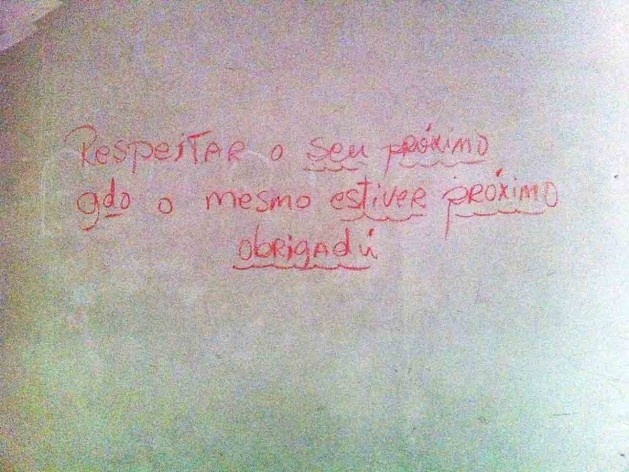 Respeitar o seu próximo
qdo o mesmo estiver próximo
obrigadú